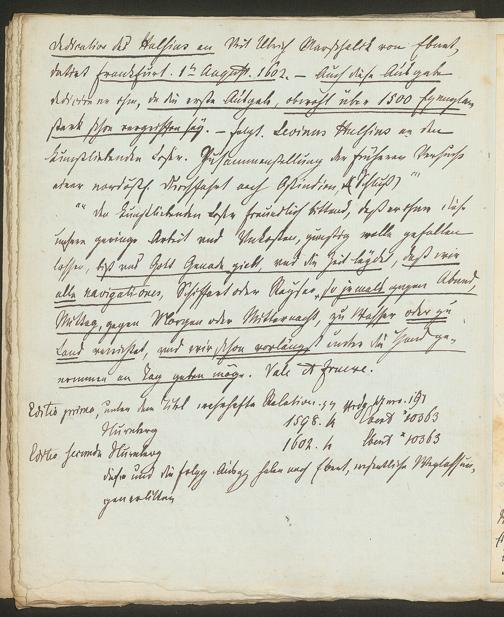 Dedication des Hulsius an Veit Ulrich Marschalck von Ebnet,
datirt Frankfurt. 1ten August. 1602. – Auch diese Ausgabe
dedicire er ihm, da die erste Ausgabe, obwohl über 1500 Exemplar
stark schon vergriffen sey. – folgt. Levinus Hulsius an den
kunstliebenden Leser. Zusammenstellung der früheren Versuche
einer nordöstl. Durchfahrt nach Ostindien, (Schluß) "
" Den kunstliebenden Leser freundlich bittend, daß er ihme diese
unsere geringe Arbeit und Unkosten, günstig wolle gefallen
lassen, biß uns Gott Genade giebt, und die Zeit leydet, daß wir
alle navigationes, Schiffart oder Raysen, so jemals gegen Abend,
Mittag, gegen Morgen oder Mitternacht, zu Wasser oder zu
Land verrichtet, und wir schon vorlängst unter die Hand ge-
nommen an Tag geben möge. Vale et fruere.
Editio prima, unter dem Titel wahrhafte Relation.
Nürnberg 1598. 4 Ebert 10363
Editio secunda Nürnberg 1602. 4 Ebert 10363
diese und die folgg. Ausgg. haben nach Ebert, wesentliche Weglassun-
gen erlitten